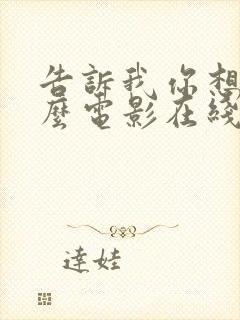 告訴我你想
麼電影在綫
達娃